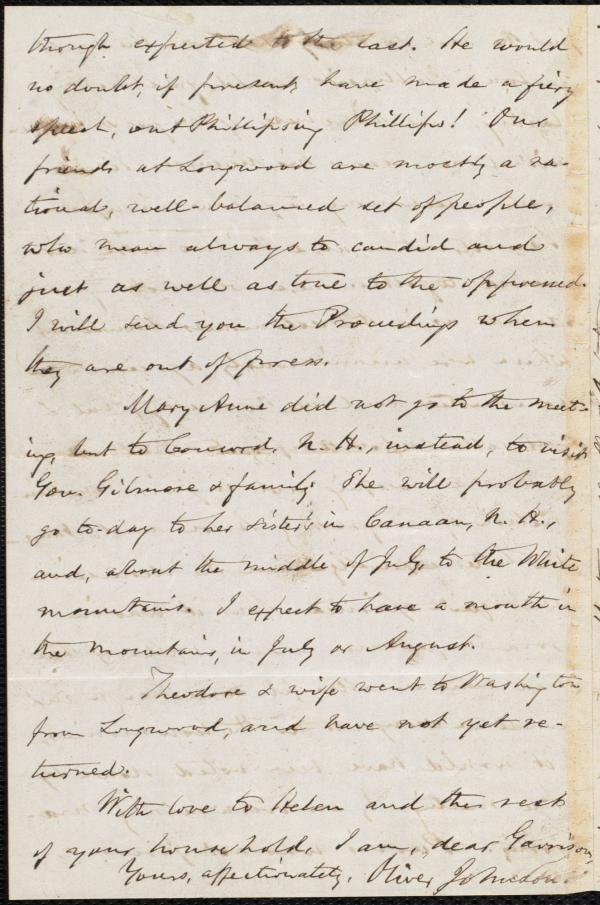 though expected to the last. He would
no doubt, if present, have made a fiery
speech, out Phillipsing Phillips! Our
friends at Longwood are mostly a ra-
tional, well-balanced set of people,
who mean always to candid and
just as well as true to the oppressed.
I will send you the Proceedings when
they are out of press.
Mary Anne did not go to the meet-
ing, but to Concord, N. H., instead, to visit
Gov. Gilmore & family. She will probably
go to-day to her sister's in Canaan, N. H.,
and, about the middle of July, to the White
mountains. I expect to have a month in
the mountains, in July or August.
Theodore & wife went to Washington
from Longwood, and have not yet re-
turned.
With love to Helen and the rest
of your household, I am, dear Garrison,
Yours, affectionately, Oliver Johnson.